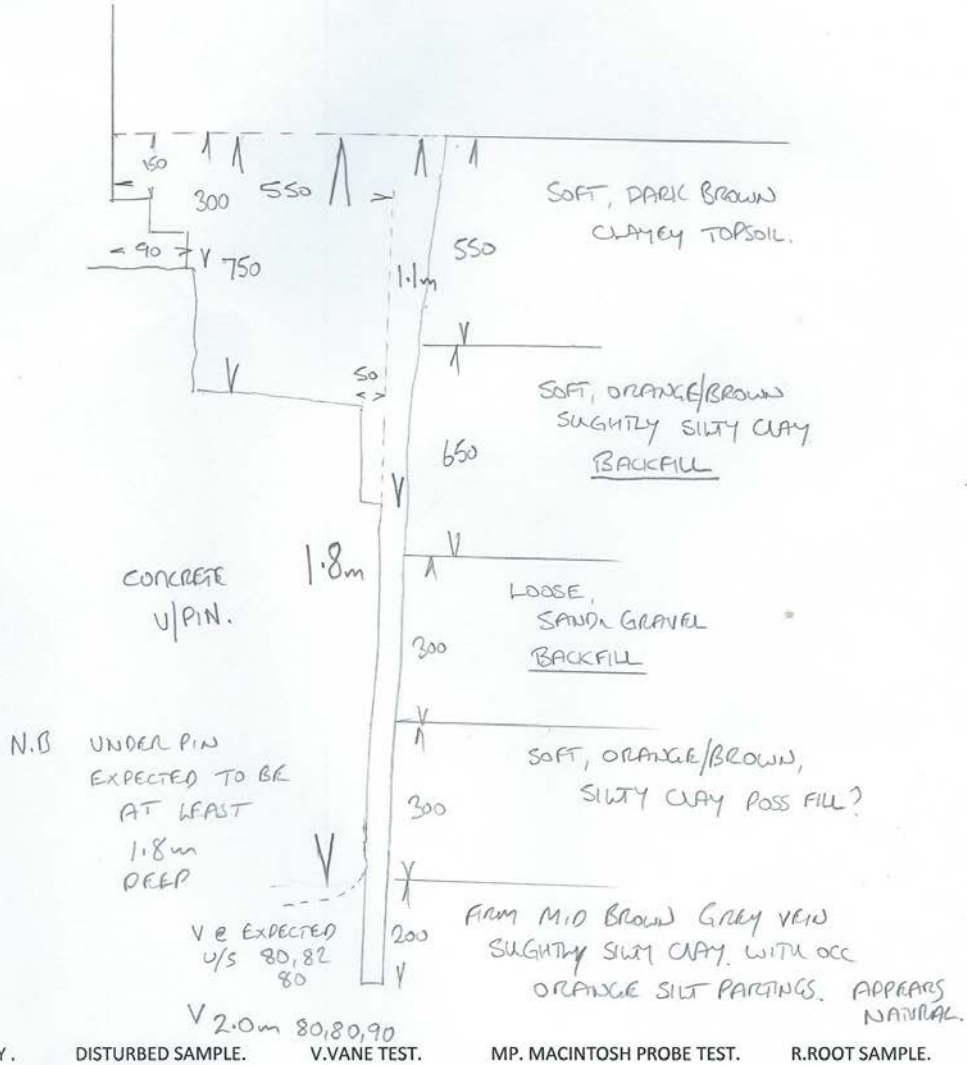 150
300
550
SOFT, DARK BROWN
CLAYEY TOPSOIL.
90
750
1.1m
550
50
SOFT, ORANGE/BROWN
SLIGHTLY SILTY CLAY
BACKFILL
650
1.8m
CONCRETE
U/PIN.
LOOSE,
SANDN GRAVEL
BACKFILL
300
N.B UNDER PIN
EXPECTED TO BE
AT LEAST
1.8m
DEEP
SOFT, ORANGE/BROWN,
SILTY CLAY POSS FILL?
300
V @ EXPECTED
U/S 80,82
80
200
FIRM MID BROWN GREY VEIN
SLIGHTLY SILTY CLAY. WITH OCC
ORANGE SILT PARTINGS. APPEARS
NATURAL.
V 2.0m 80,80,90
Y. DISTURBED SAMPLE. V.VANE TEST. MP. MACINTOSH PROBE TEST. R.ROOT SAMPLE.